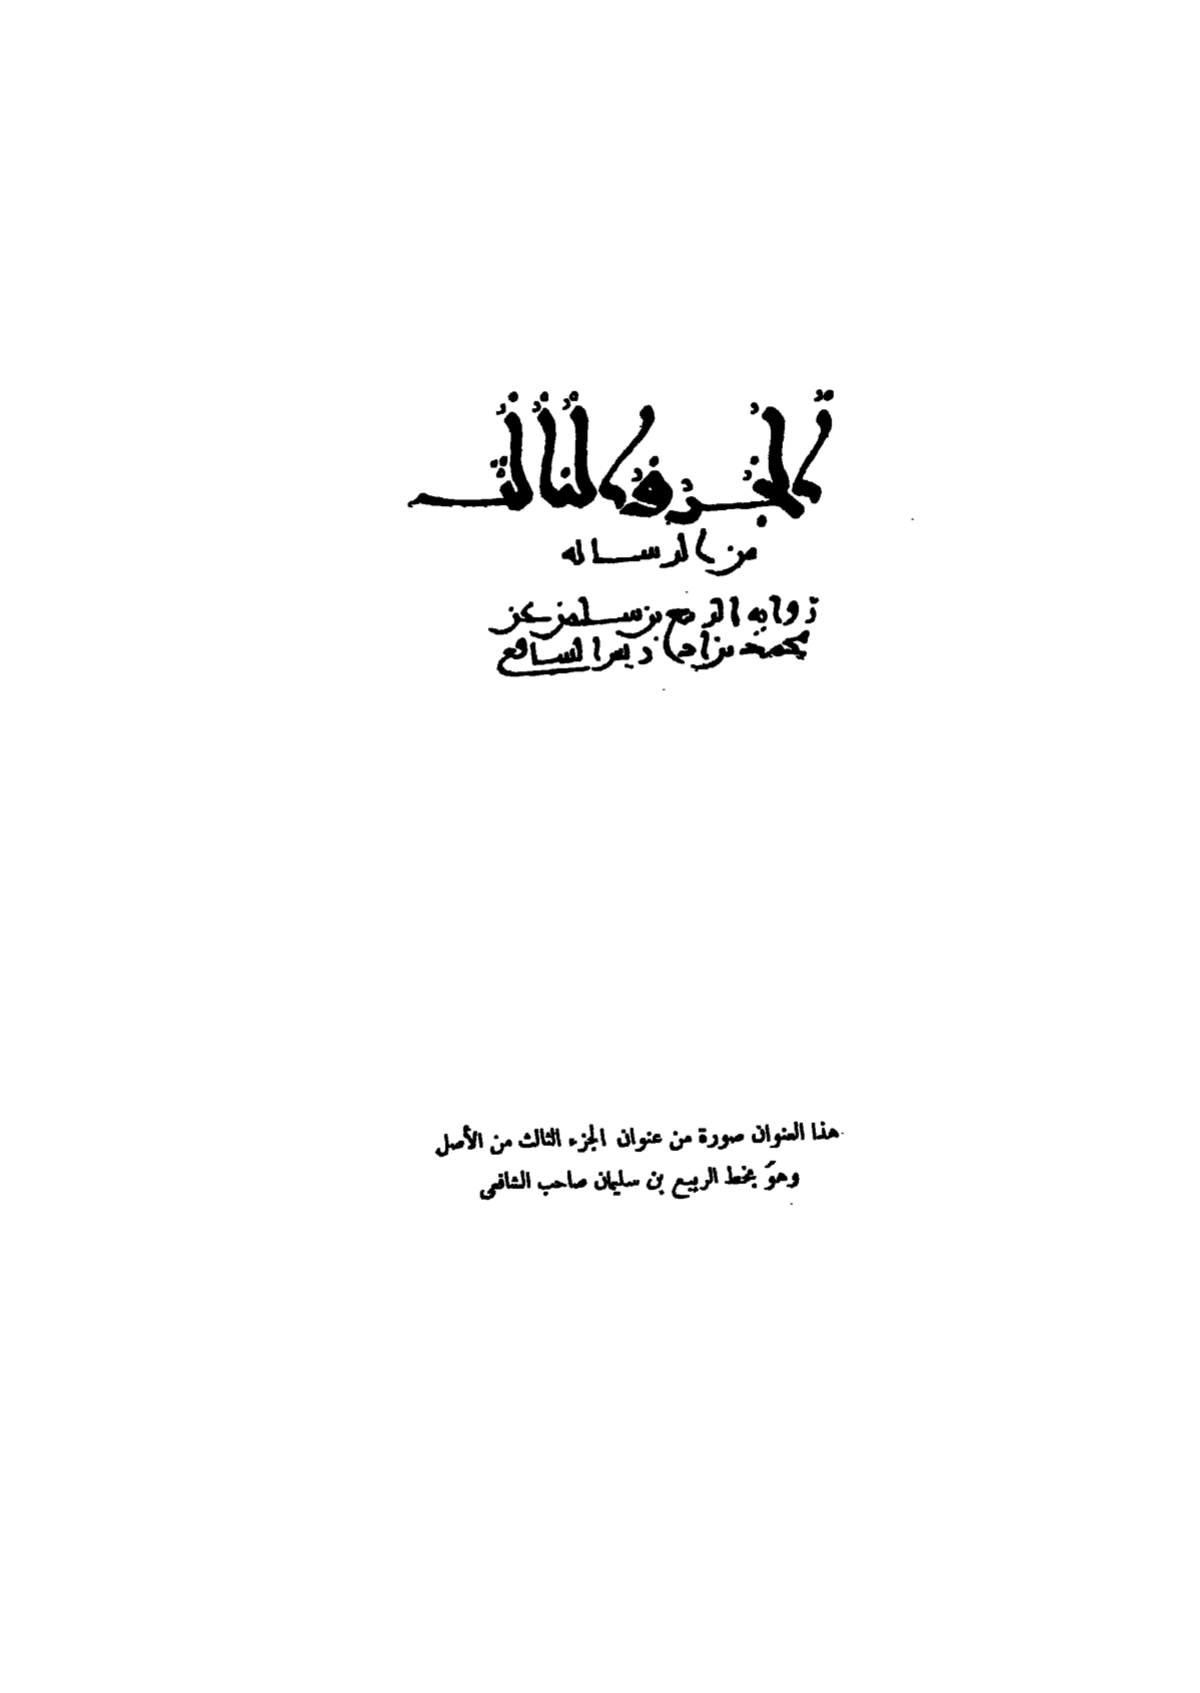 الجزو الثالث
من الرساله
روايه الربيع بن سليمن عن
محمد بن ادريس الشافعي
هذا العنوان صورة من عنوان الجزء الثالث من الأصل
وهوَ بخط الربيع بن سليمان صاحب الشافعى